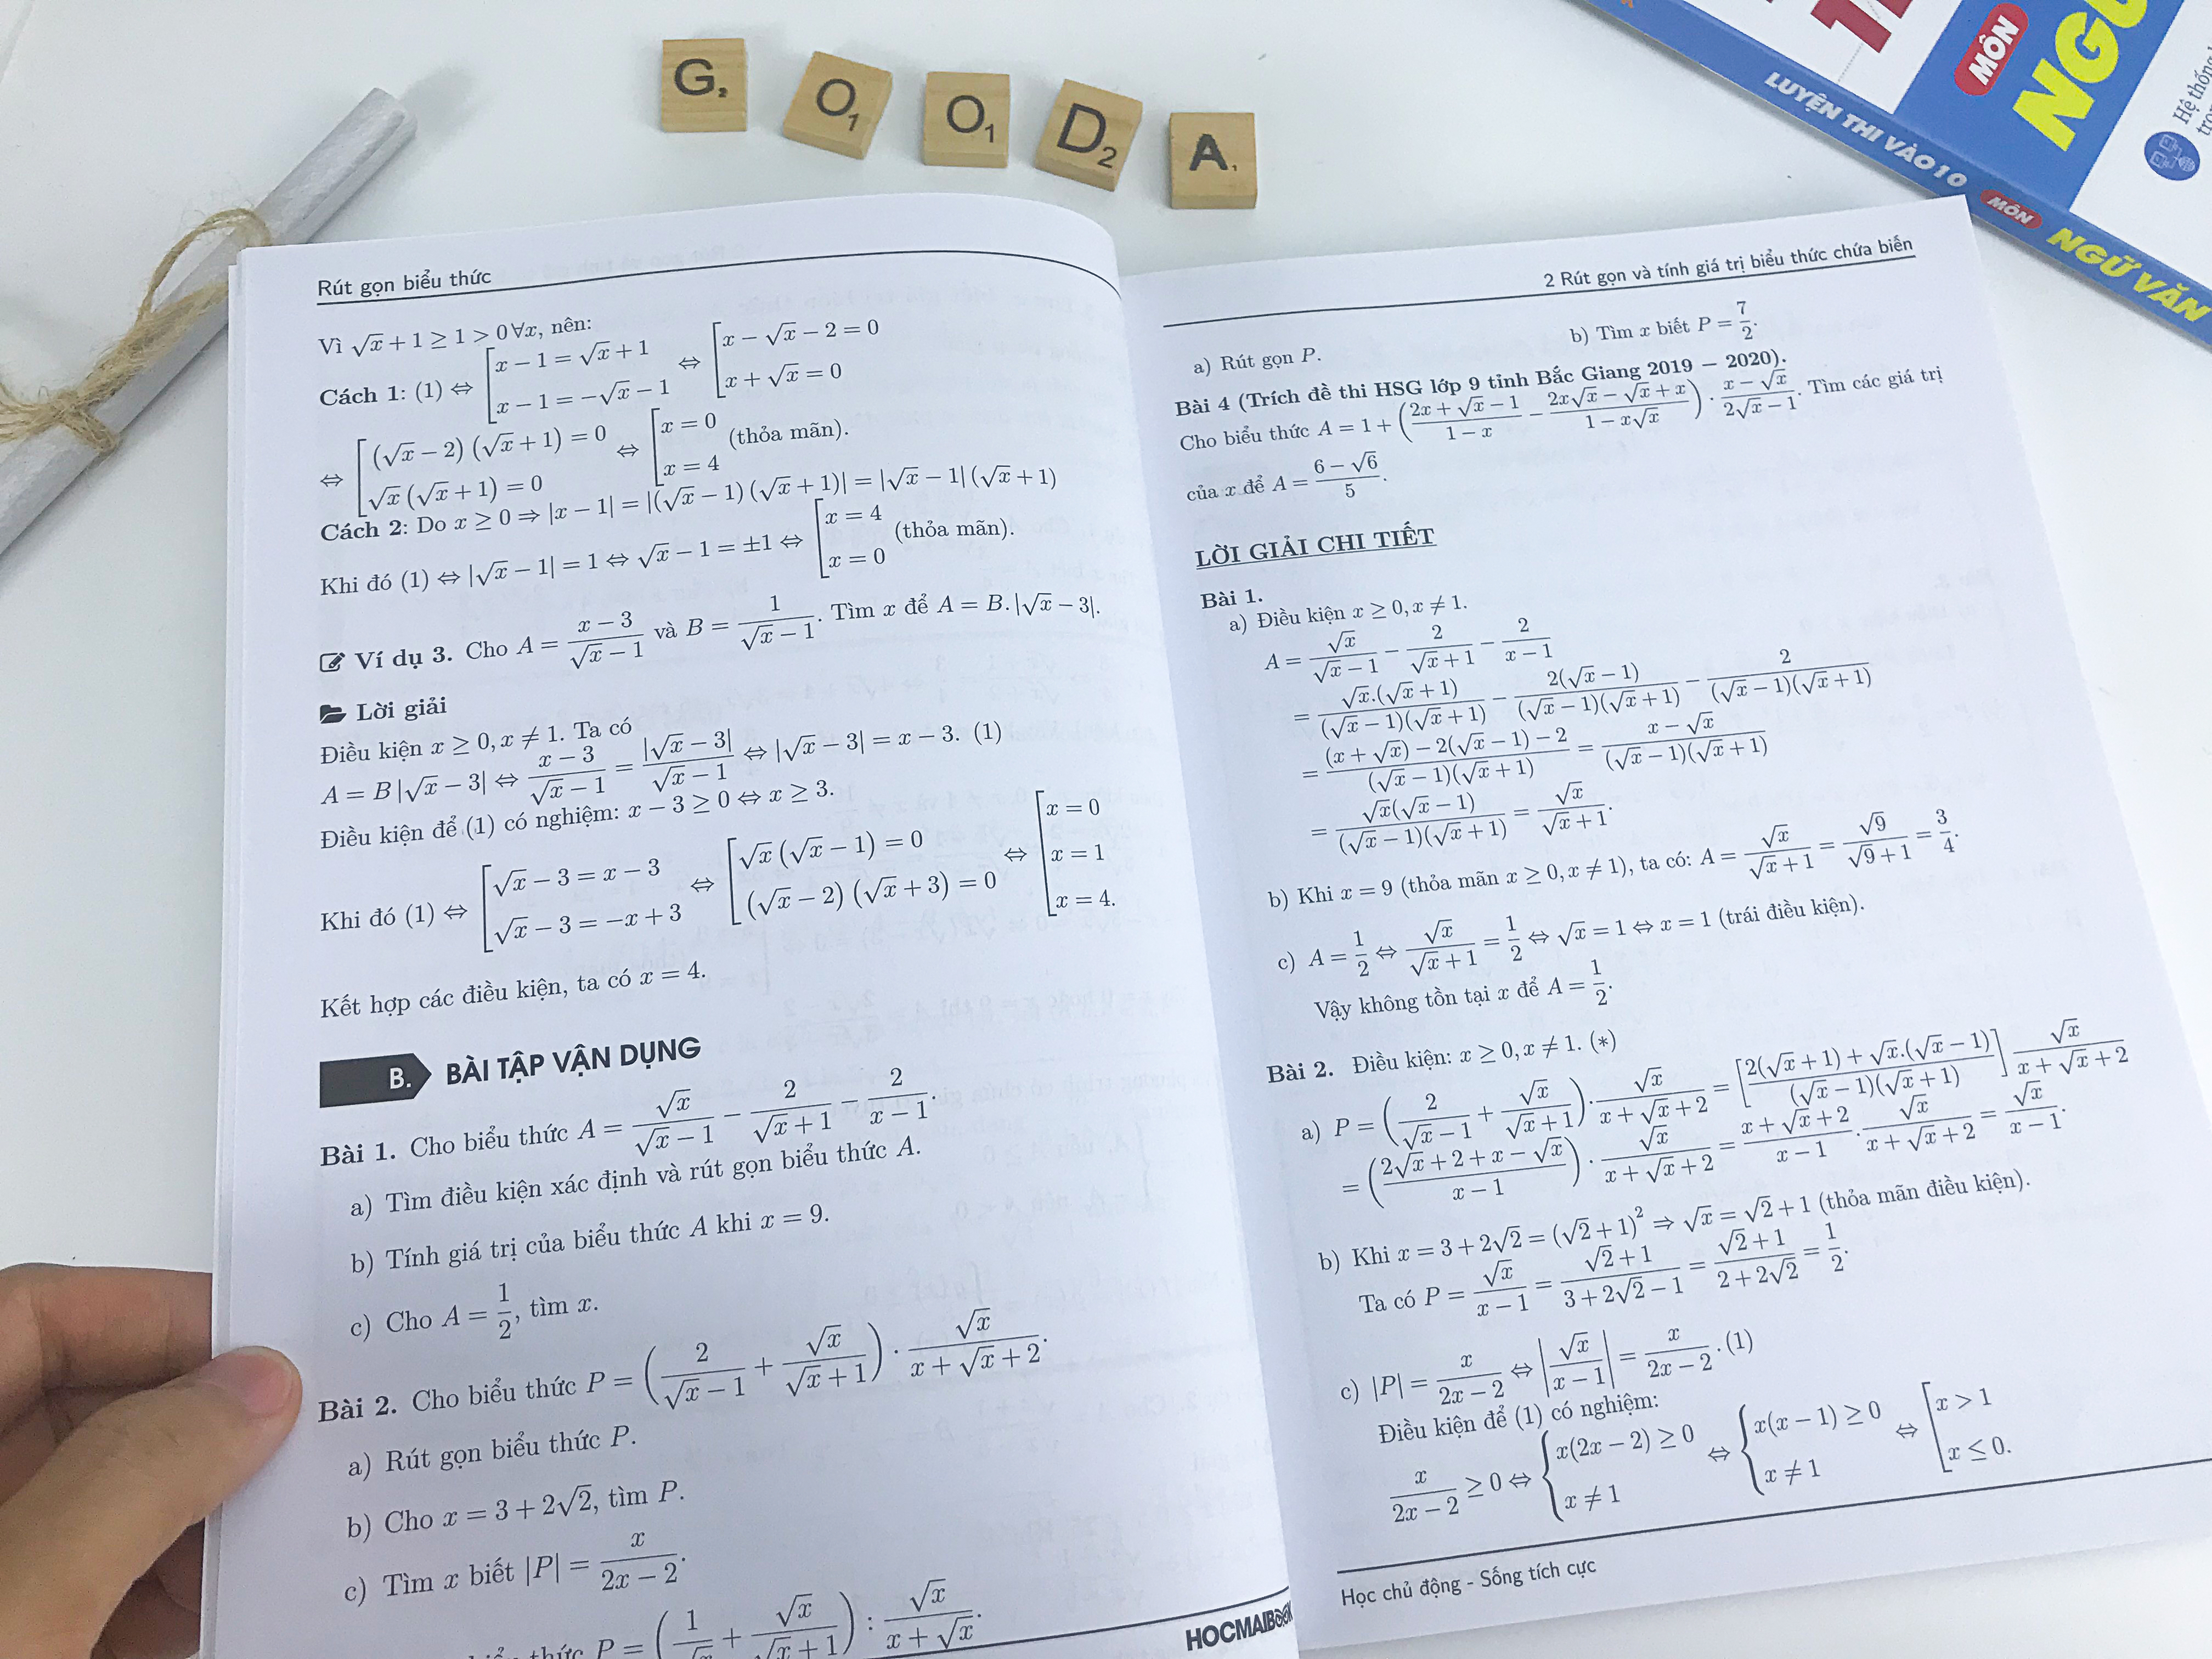 G₂ O₁ O₁ D₂ A₁
MÔN
LUYỆN THI VÀO 10 MÔN NGỮ VĂN
Hệ thống
Rút gọn biểu thức
Vì √x + 1 ≥ 1 > 0 ∀x, nên:
Cách 1: (1) ⇔ [x − 1 = √x + 1; x − 1 = −√x − 1 ⇔ [x − √x − 2 = 0; x + √x = 0
⇔ [(√x − 2)(√x + 1) = 0; √x(√x + 1) = 0 ⇔ [x = 0; x = 4 (thỏa mãn).
Cách 2: Do x ≥ 0 ⇒ |x − 1| = |(√x − 1)(√x + 1)| = |√x − 1|(√x + 1)
Khi đó (1) ⇔ |√x − 1| = 1 ⇔ √x − 1 = ±1 ⇔ [x = 4; x = 0 (thỏa mãn).
Ví dụ 3. Cho A = (x − 3)/(√x − 1) và B = 1/(√x − 1). Tìm x để A = B.|√x − 3|.
Lời giải
Điều kiện x ≥ 0, x ≠ 1. Ta có
A = B|√x − 3| ⇔ (x − 3)/(√x − 1) = |√x − 3|/(√x − 1) ⇔ |√x − 3| = x − 3. (1)
Điều kiện để (1) có nghiệm: x − 3 ≥ 0 ⇔ x ≥ 3.
Khi đó (1) ⇔ [√x − 3 = x − 3; √x − 3 = −x + 3 ⇔ [√x(√x − 1) = 0; (√x − 2)(√x + 3) = 0 ⇔ [x = 0; x = 1; x = 4.
Kết hợp các điều kiện, ta có x = 4.
B. BÀI TẬP VẬN DỤNG
Bài 1. Cho biểu thức A = √x/(√x − 1) − 2/(√x + 1) − 2/(x − 1).
a) Tìm điều kiện xác định và rút gọn biểu thức A.
b) Tính giá trị của biểu thức A khi x = 9.
c) Cho A = 1/2, tìm x.
Bài 2. Cho biểu thức P = (2/(√x − 1) + √x/(√x + 1)) · √x/(x + √x + 2).
a) Rút gọn biểu thức P.
b) Cho x = 3 + 2√2, tìm P.
c) Tìm x biết |P| = x/(2x − 2).
thức P = (1/√x + √x/(√x + 1)) : √x/(x + √x).
HOCMAIBOOK
2 Rút gọn và tính giá trị biểu thức chứa biến
a) Rút gọn P. b) Tìm x biết P = 7/2.
Bài 4 (Trích đề thi HSG lớp 9 tỉnh Bắc Giang 2019 − 2020).
Cho biểu thức A = 1 + ((2x + √x − 1)/(1 − x) − (2x√x − √x + x)/(1 − x√x)) · (x − √x)/(2√x − 1). Tìm các giá trị
của x để A = (6 − √6)/5.
LỜI GIẢI CHI TIẾT
Bài 1.
a) Điều kiện x ≥ 0, x ≠ 1.
A = √x/(√x − 1) − 2/(√x + 1) − 2/(x − 1)
= √x.(√x + 1)/((√x − 1)(√x + 1)) − 2(√x − 1)/((√x − 1)(√x + 1)) − 2/((√x − 1)(√x + 1))
= ((x + √x) − 2(√x − 1) − 2)/((√x − 1)(√x + 1)) = (x − √x)/((√x − 1)(√x + 1))
= √x(√x − 1)/((√x − 1)(√x + 1)) = √x/(√x + 1).
b) Khi x = 9 (thỏa mãn x ≥ 0, x ≠ 1), ta có: A = √x/(√x + 1) = √9/(√9 + 1) = 3/4.
c) A = 1/2 ⇔ √x/(√x + 1) = 1/2 ⇔ √x = 1 ⇔ x = 1 (trái điều kiện).
Vậy không tồn tại x để A = 1/2.
Bài 2. Điều kiện: x ≥ 0, x ≠ 1. (∗)
a) P = (2/(√x − 1) + √x/(√x + 1)) · √x/(x + √x + 2) = [(2(√x + 1) + √x.(√x − 1))/((√x − 1)(√x + 1))] √x/(x + √x + 2)
= ((2√x + 2 + x − √x)/(x − 1)) · √x/(x + √x + 2) = (x + √x + 2)/(x − 1) · √x/(x + √x + 2) = √x/(x − 1).
b) Khi x = 3 + 2√2 = (√2 + 1)² ⇒ √x = √2 + 1 (thỏa mãn điều kiện).
Ta có P = √x/(x − 1) = (√2 + 1)/(3 + 2√2 − 1) = (√2 + 1)/(2 + 2√2) = 1/2.
c) |P| = x/(2x − 2) ⇔ |√x/(x − 1)| = x/(2x − 2). (1)
Điều kiện để (1) có nghiệm:
x/(2x − 2) ≥ 0 ⇔ {x(2x − 2) ≥ 0; x ≠ 1 ⇔ {x(x − 1) ≥ 0; x ≠ 1 ⇔ [x > 1; x ≤ 0.
Học chủ động - Sống tích cực